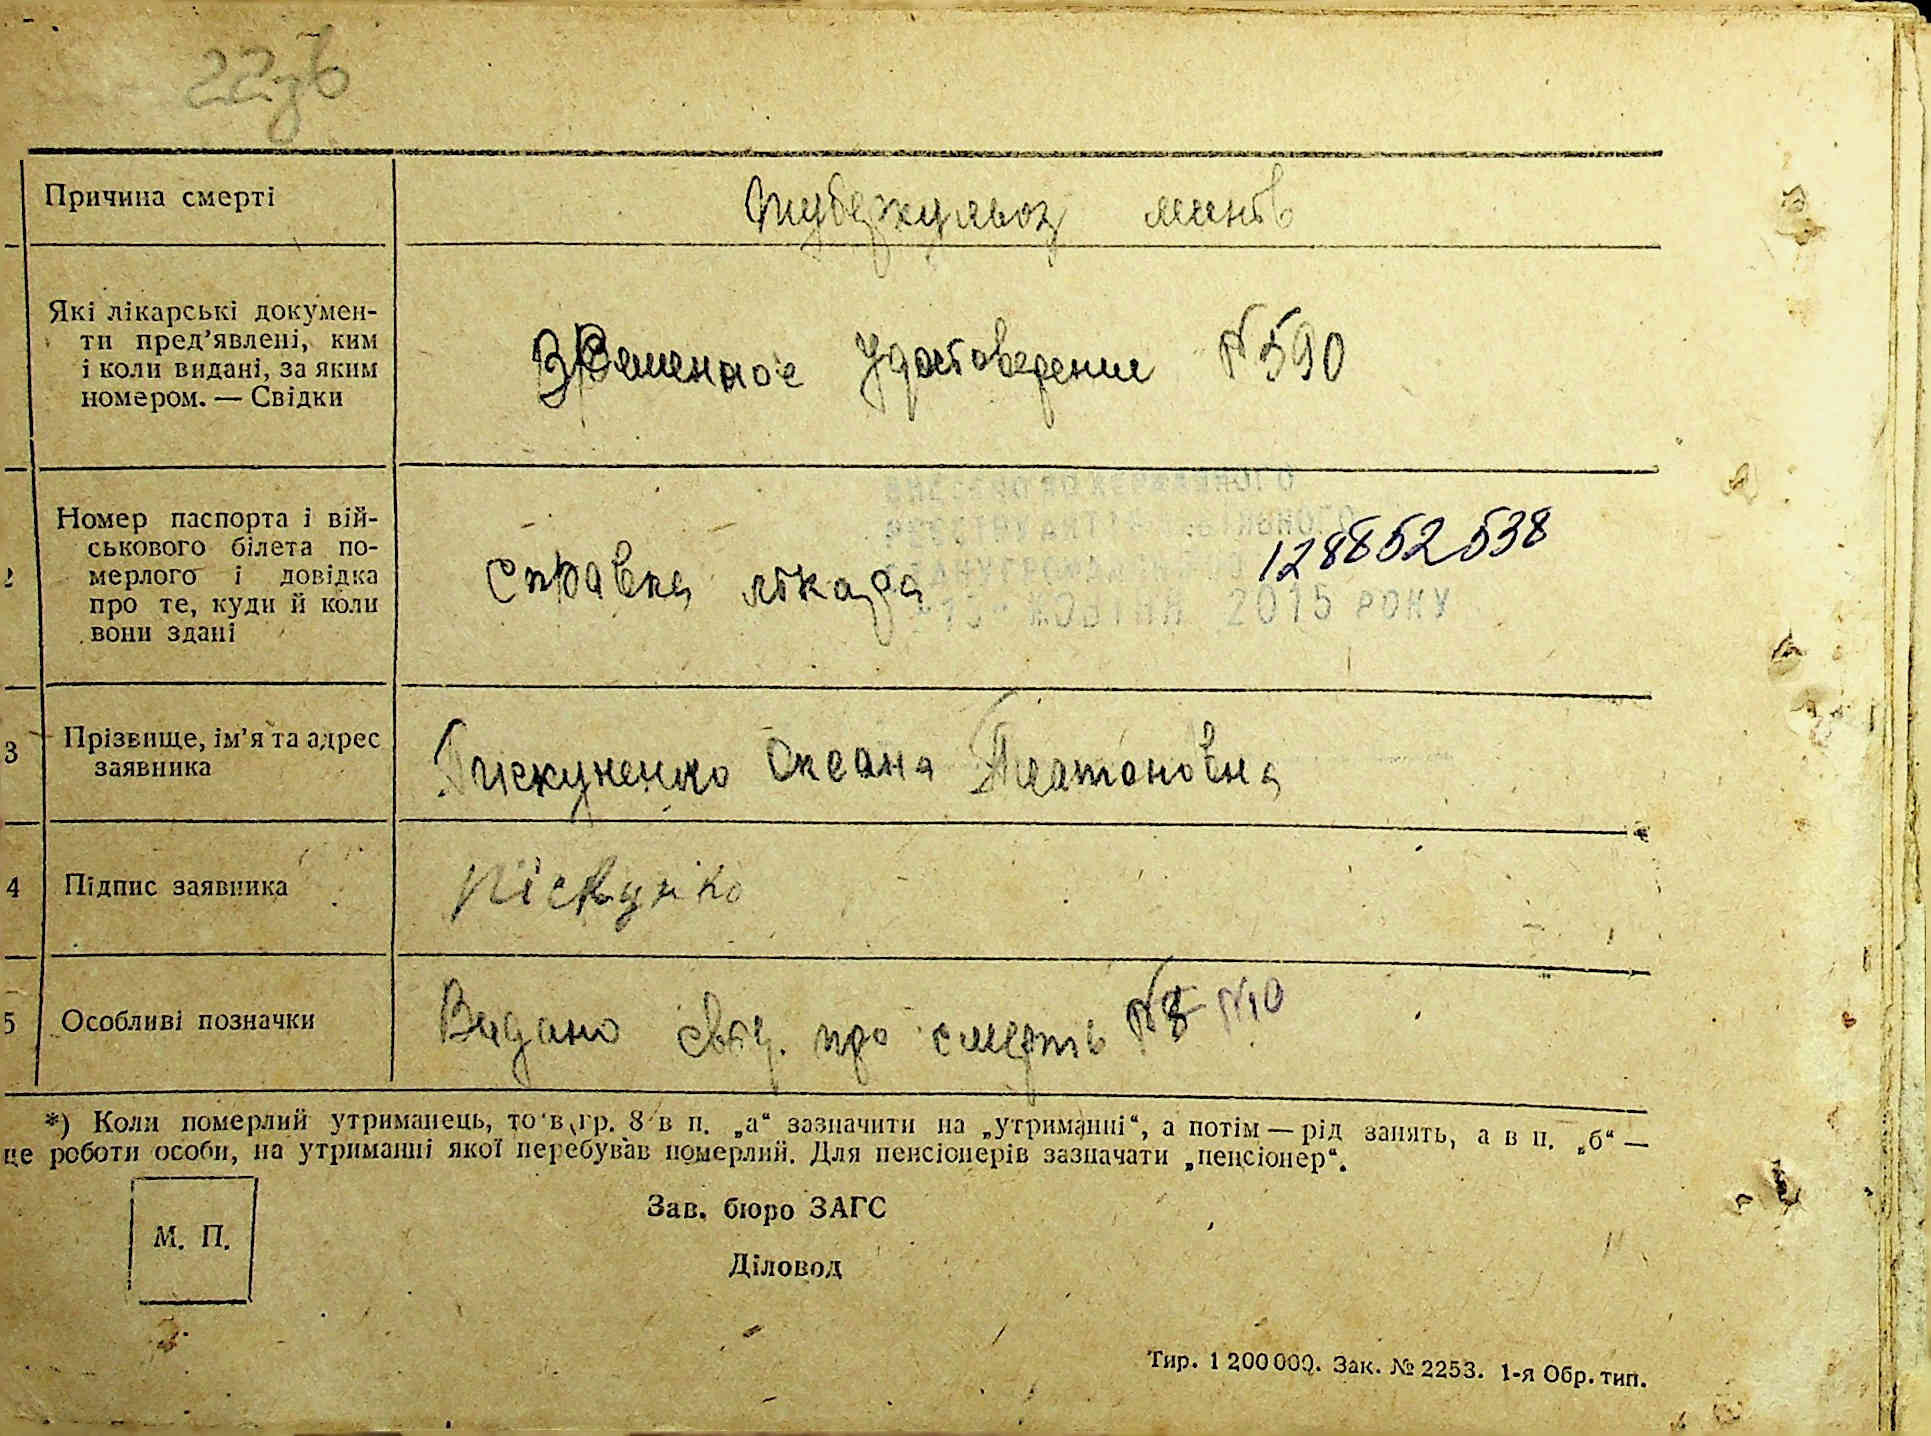 22зв
Причина смерті
туберкульоз легенів
Які лікарські докумен-
ти пред’явлені, ким
і коли видані, за яким
номером. — Свідки
Временное Удостоверение № 590
Номер паспорта і вій-
ськового білета по-
мерлого і довідка
про те, куди й коли
вони здані
Справка лікаря
128852538
ВНЕСЕНО ДО ДЕРЖАВНОГО
РЕЄСТРУ АКТІВ ЦИВІЛЬНОГО
СТАНУ ГРОМАДЯН
ЖОВТНЯ 2015 РОКУ
3
Прізвище, ім’я та адрес
заявника
Пискуненко Оксана Платоновна
4
Підпис заявника
Піскунко
5
Особливі позначки
Видано свід. про смерть №8 №10
*) Коли померлий утриманець, то в гр. 8 в п. „а“ зазначити на „утриманні“, а потім — рід занять, а в п. „б“ —
це роботи особи, на утриманні якої перебував померлий. Для пенсіонерів зазначати „пенсіонер“.
М. П.
Зав. бюро ЗАГС
Діловод
Тир. 1 200 000. Зак. № 2253. 1-я Обр. тип.